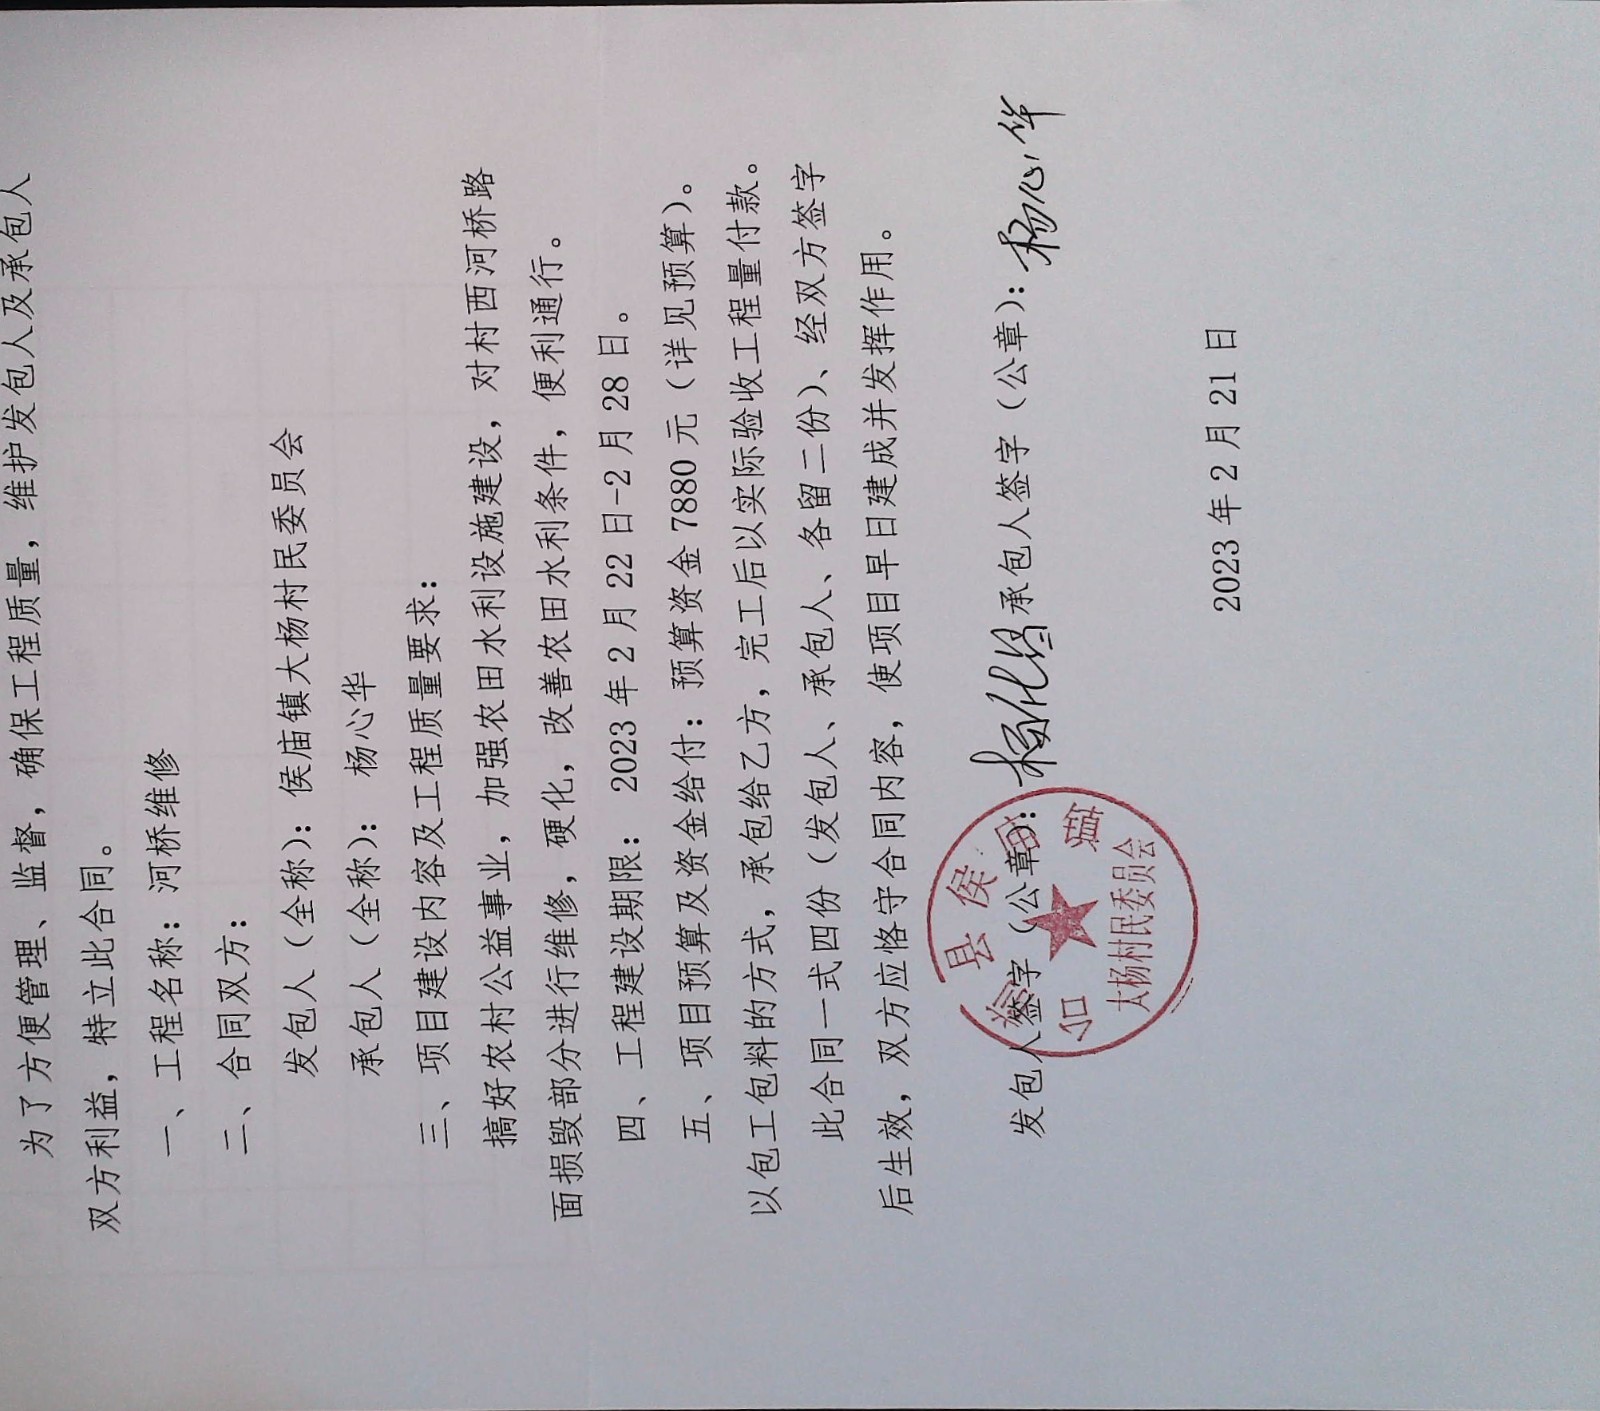 为了方便管理、监督，确保工程质量，维护发包人及承包人
双方利益，特立此合同。
一、工程名称：河桥维修
二、合同双方：
发包人（全称）：侯庙镇大杨村民委员会
承包人（全称）：杨心华
三、项目建设内容及工程质量要求：
搞好农村公益事业，加强农田水利设施建设，对村西河桥路
面损毁部分进行维修，硬化，改善农田水利条件，便利通行。
四、工程建设期限：2023年2月22日-2月28日。
五、项目预算及资金给付：预算资金7880元（详见预算）。
以包工包料的方式，承包给乙方，完工后以实际验收工程量付款。
此合同一式四份（发包人、承包人、各留二份）、经双方签字
后生效，双方应恪守合同内容，使项目早日建成并发挥作用。
发包人签字（公章）：承包人签字（公章）：杨心华
县侯庙镇
大杨村民委员会
2023年2月21日